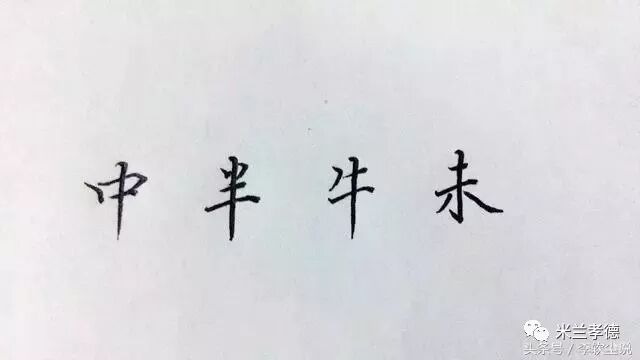 中半牛未
米兰孝德
头条号/李软尘说